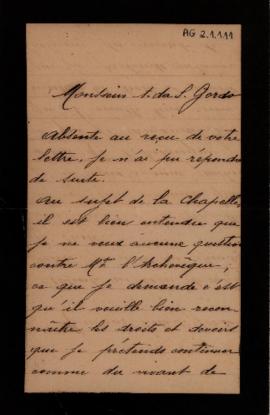 AG 2.1.1.11
Monsieur A. da S. Gordo
Absente au reçu de votre
lettre, je n'ai pu répondre
de suite.
Au sujet de la Chapelle,
il est bien entendu que
je ne veux aucune question
contre Mgr l'Archevêque ;
ce que je demande c'est
qu'il veuille bien recon-
naître les droits et devoirs
que je prétends continuer
comme du vivant de